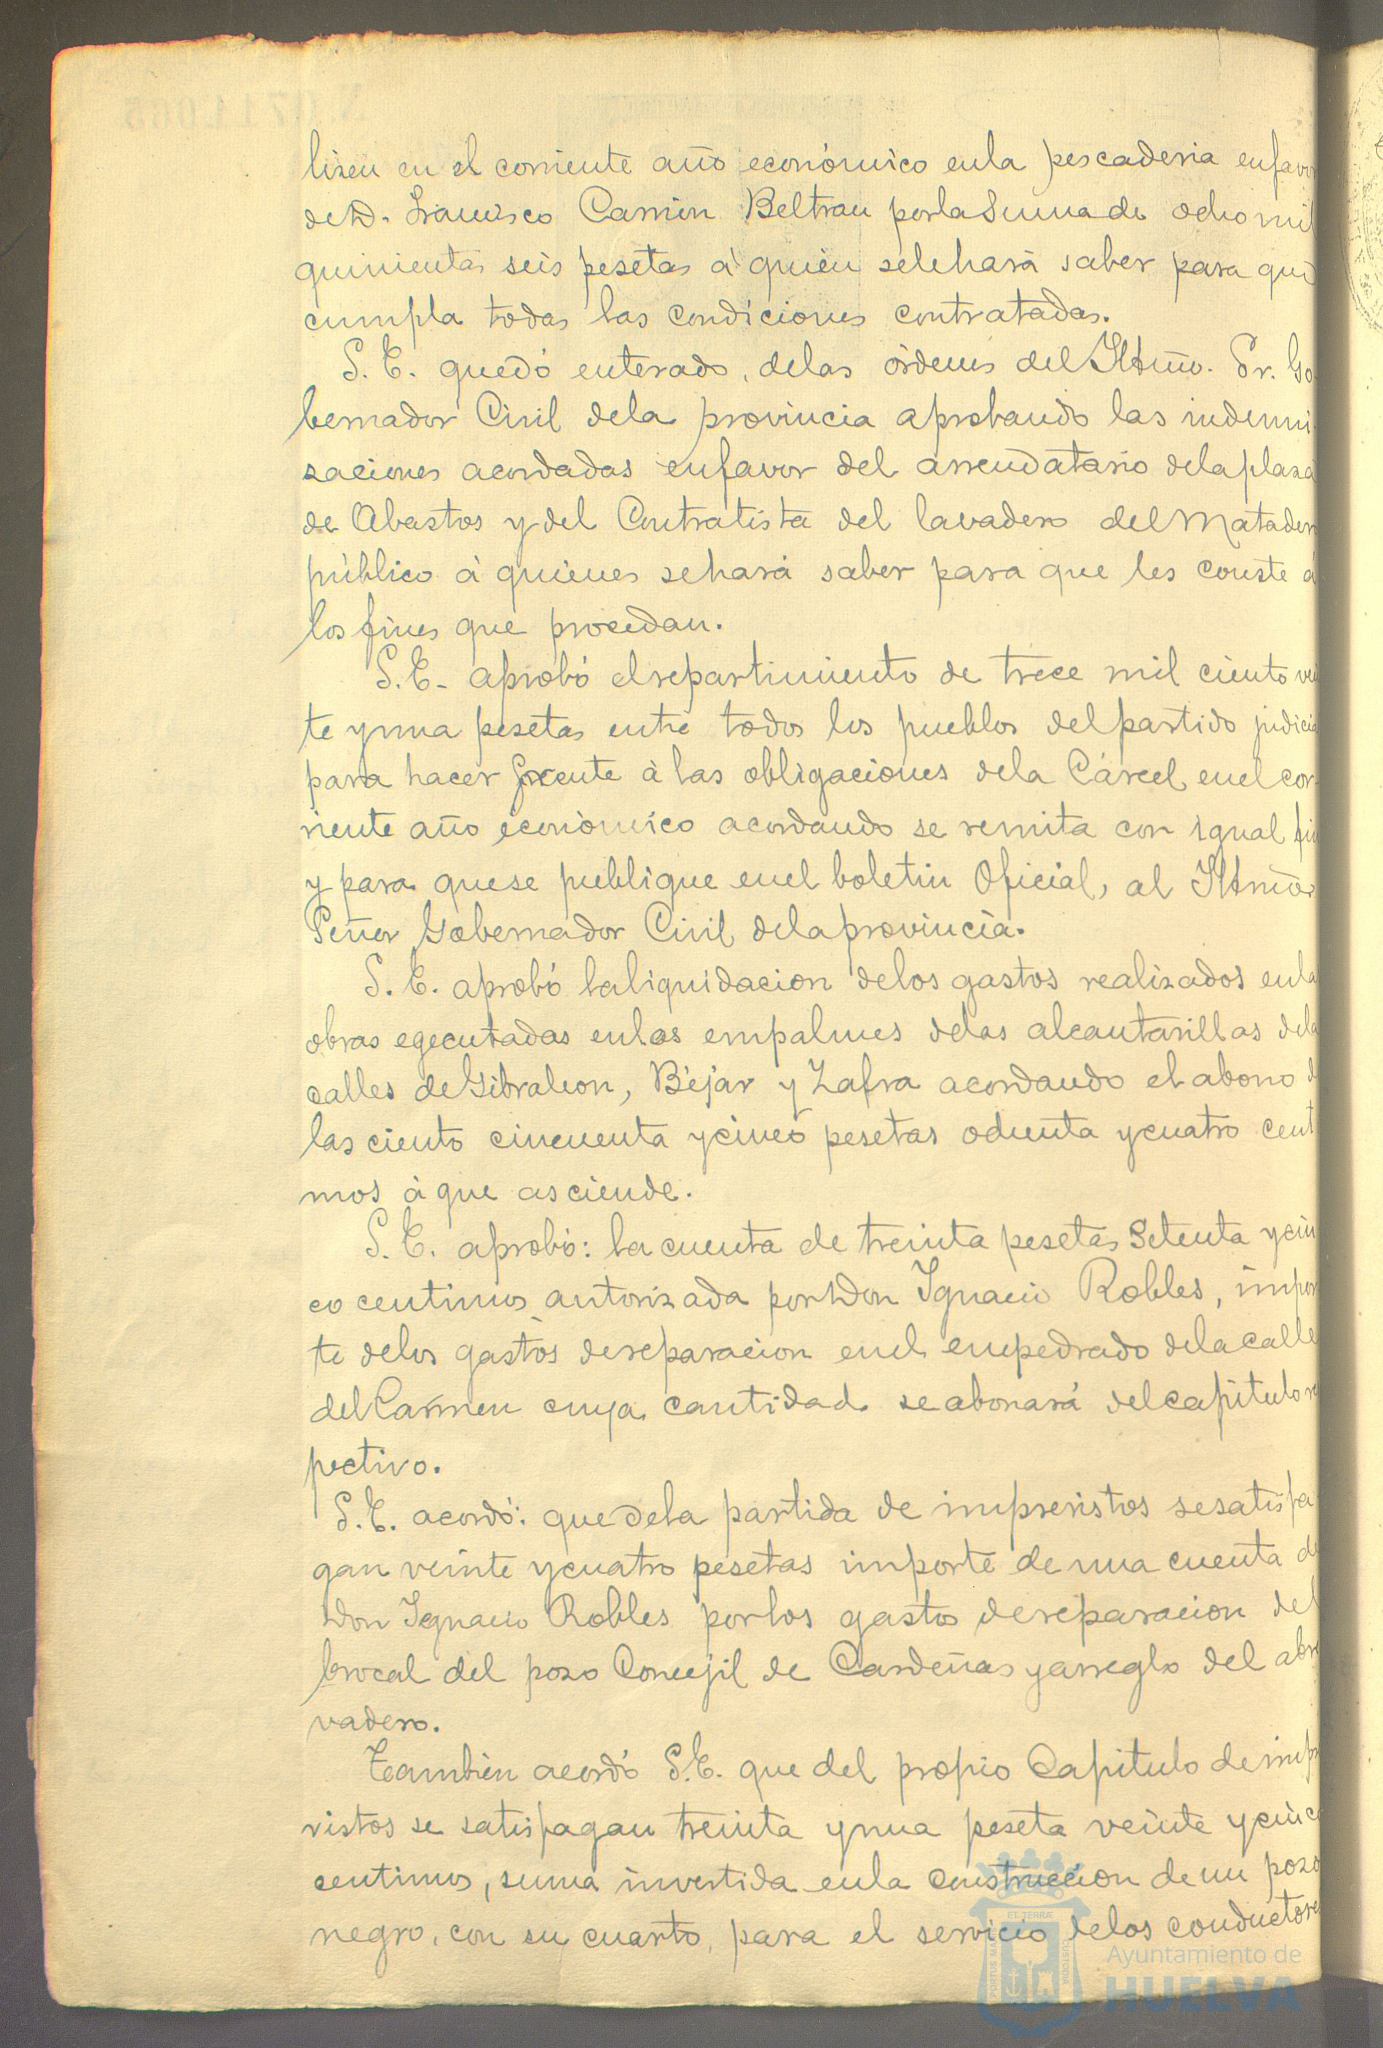 lizen en el corriente año económico en la pescaderia en favor
de D. Francisco Carrion Beltran por la Suma de ocho mil
quinientas seis pesetas á quien se le hará saber para que
cumpla todas las condiciones contratadas.
S. E. quedó enterado, de las órdenes del Iltmo. Sr. Go
bernador Civil de la provincia aprobando las indemni
zaciones acordadas en favor del arrendatario de la plaza
de Abastos y del Contratista del lavadero del Matadero
público á quienes se hará saber para que les conste á
los fines que procedan.
S. E. aprobó el repartimiento de trece mil ciento vein
te y una pesetas entre todos los pueblos del partido judicial
para hacer frente á las obligaciones de la Cárcel en el cor
riente año económico acordando se remita con igual fin
y para que se publique en el boletin Oficial, al Iltmo.
Señor Gobernador Civil de la provincia.
S. E. aprobó la liquidacion de los gastos realizados en la
obras egecutadas en los empalmes de las alcantarillas de la
calles de Gibraleon, Béjar y Zafra acordando el abono de
las ciento cincuenta y cinco pesetas ochenta y cuatro centi
mos á que asciende.
S. E. aprobó: la cuenta de treinta pesetas Setenta y cin
co centimos autorizada por Don Ignacio Robles, impor
te de los gastos de reparacion en el empedrado de la calle
del Carmen cuya cantidad se abonará del capitulo res
pectivo.
S. E. acordó: que de la partida de imprevistos se satisfa
gan veinte y cuatro pesetas importe de una cuenta de
Don Ignacio Robles por los gastos de reparacion del
brocal del pozo Concejil de Cardeñas y arreglo del abre
vadero.
Tambien acordó S. E. que del propio Capitulo de impre
vistos se satisfagan treinta y una peseta veinte y cinco
centimos, suma invertida en la construccion de un pozo
negro, con su cuarto, para el servicio de los conductores
Ayuntamiento de
HUELVA